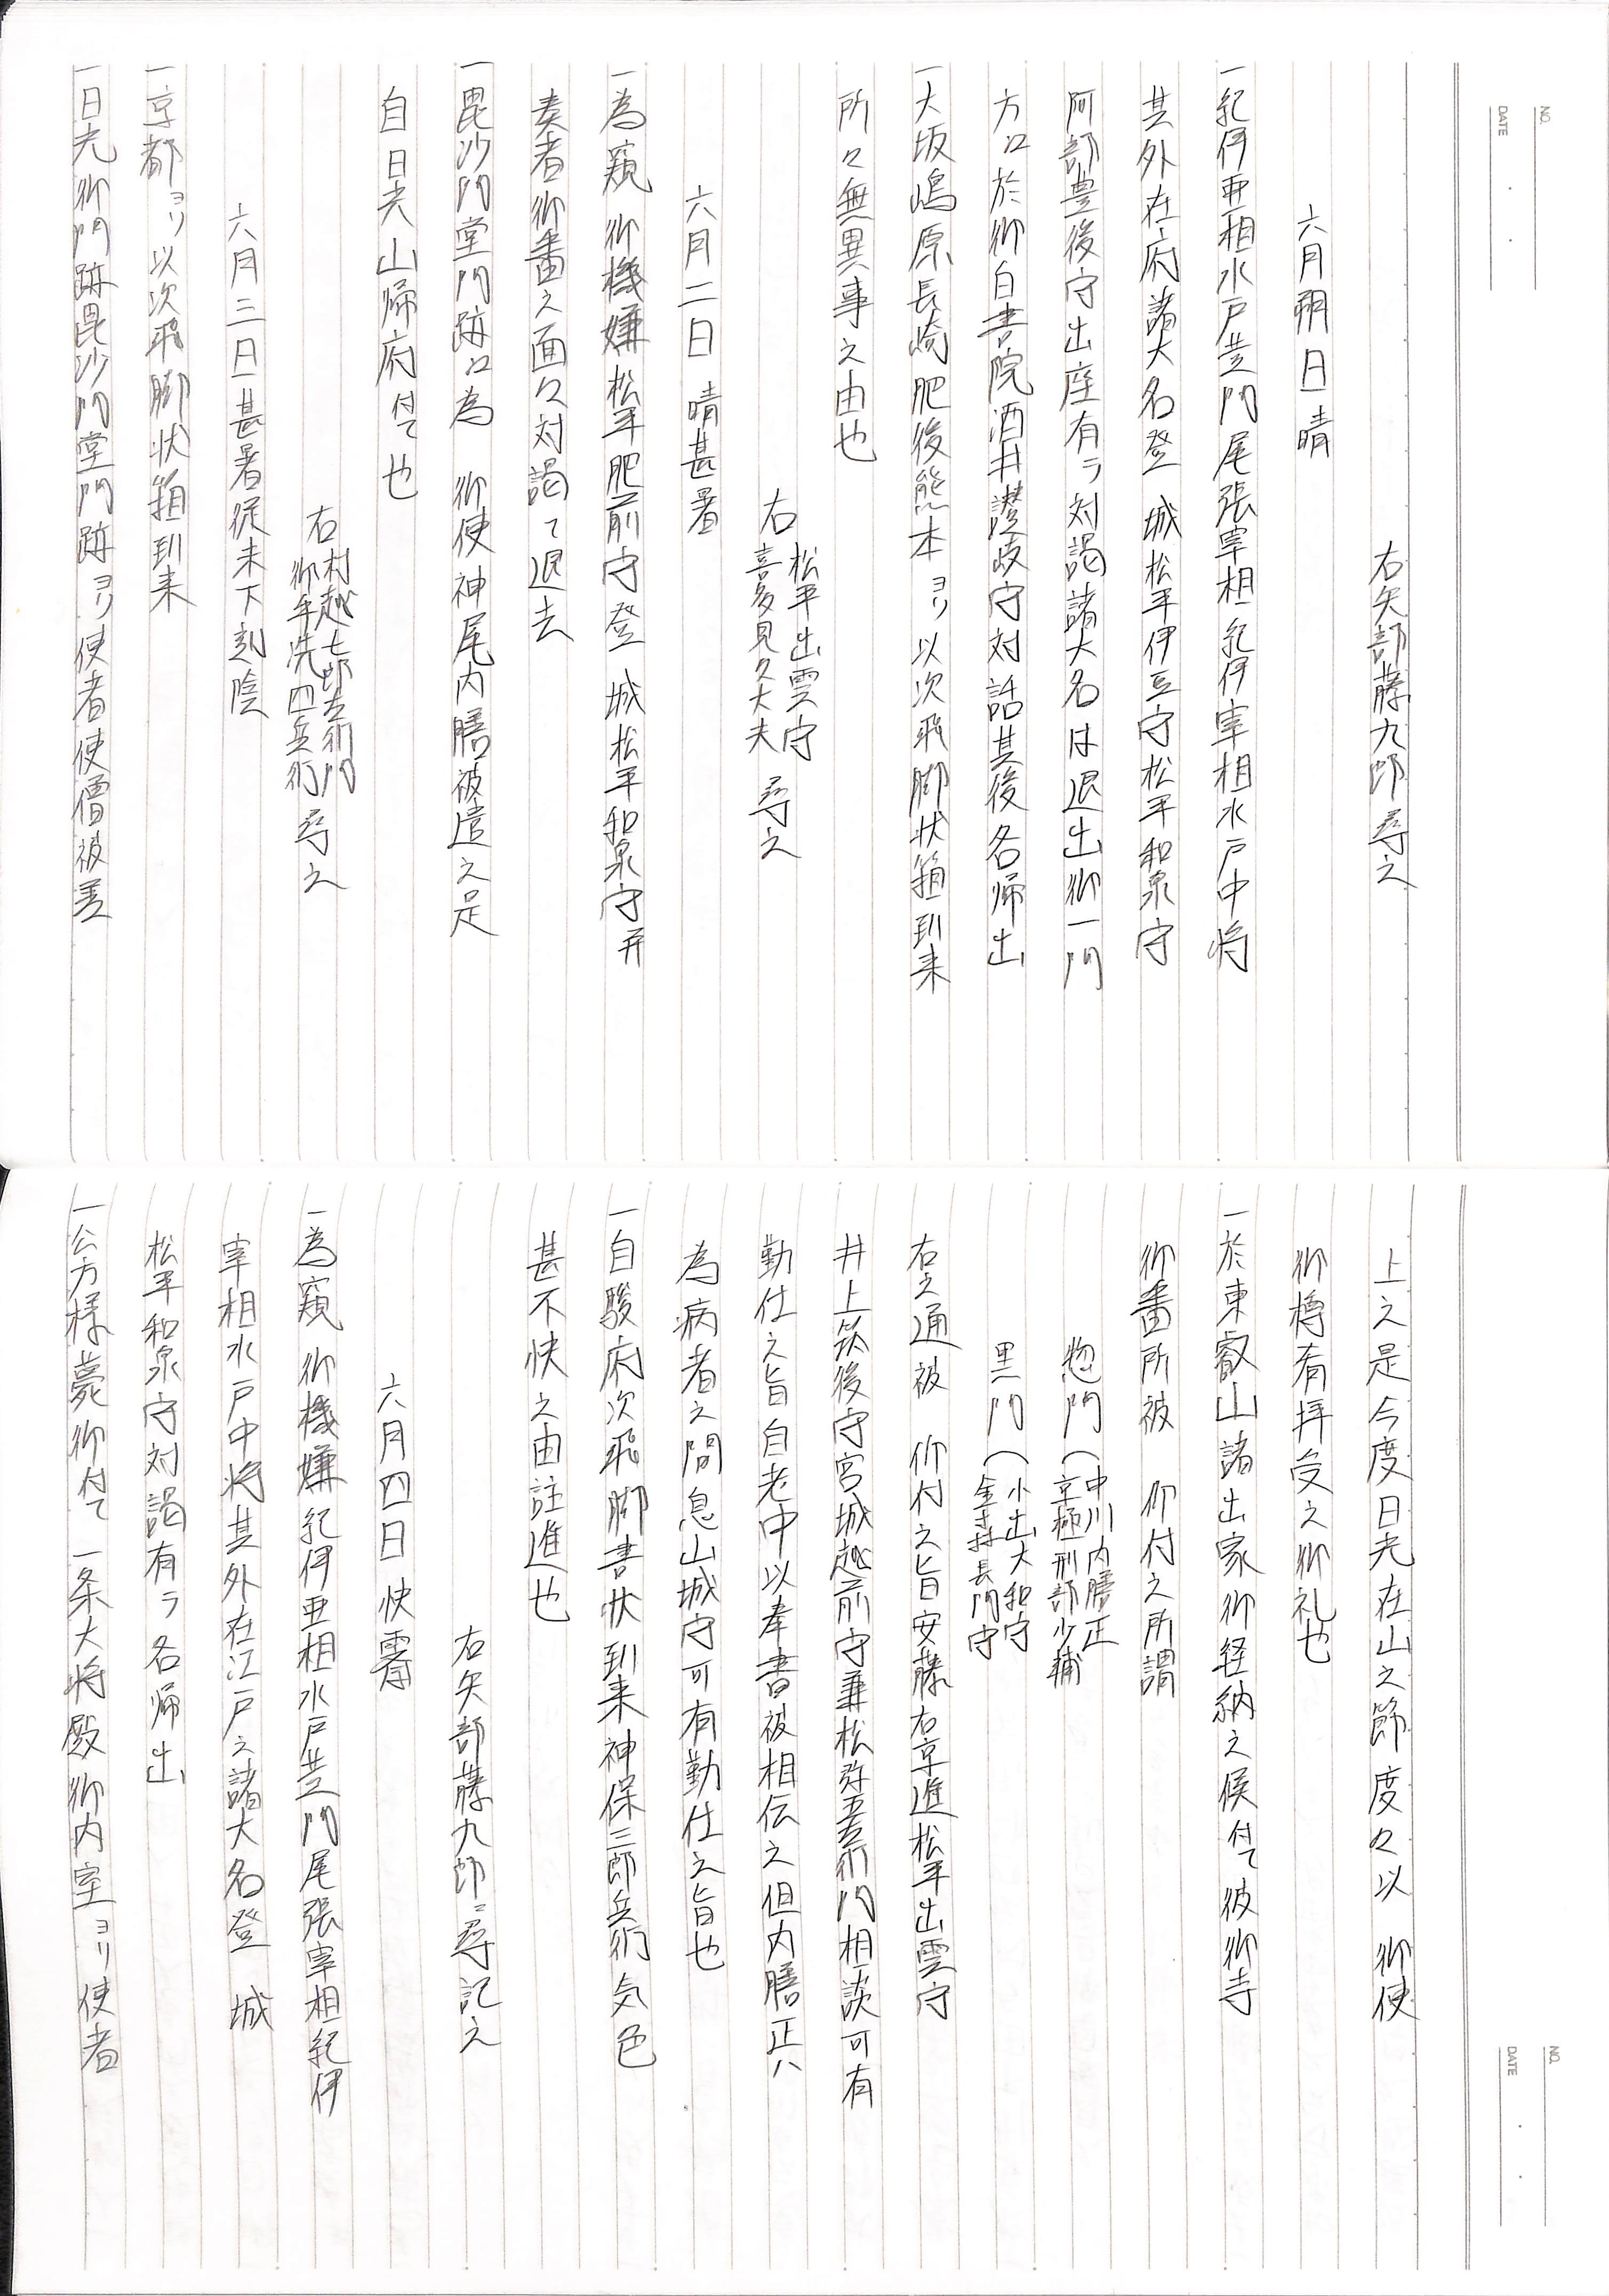 NO.
DATE
右矢部藤九郎尋之
六月朔日晴
一紀伊亜相水戸黄門尾張宰相紀伊宰相水戸中将
其外在府諸大名登 城松平伊豆守松平和泉守
阿部豊後守出座有テ対謁諸大名は退出御一門
方ニ於御白書院酒井讃岐守対話其後各帰出
一大坂嶋原長崎肥後熊本ヨリ以次飛脚状箱到来
所々無異事之由也
右 松平出雲守
喜多見久大夫 尋之
六月二日晴甚暑
一為窺 御機嫌松平肥前守登 城松平和泉守并
奏者御番之面々対謁て退去
一毘沙門堂門跡ニ為 御使神尾内膳被遣之是
自日光山帰府付て也
右 村越七郎左衛門
御手洗四兵衛 尋之
六月三日甚暑従未下刻陰
一京都ヨリ以次飛脚状箱到来
一日光御門跡毘沙門堂門跡ヨリ使者使僧被差
NO.
DATE
上之是今度日光在山之節度々以 御使
御樽肴拝受之御礼也
一於東叡山諸出家御経納之候付て彼御寺
御番所被 仰付之所謂
惣門( 中川内膳正
京極刑部少輔
黒門( 小出大和守
金森長門守
右之通被 仰付之旨安藤右京進松平出雲守
井上筑後守宮城越前守兼松弥五左衛門相談可有
勤仕之旨自老中以奉書被相伝之但内膳正ハ
為病者之間息山城守可有勤仕之旨也
一自駿府次飛脚書状到来神保三郎兵衛気色
甚不快之由註進也
右矢部藤九郎ニ尋記之
六月四日快霽
一為窺 御機嫌紀伊亜相水戸黄門尾張宰相紀伊
宰相水戸中将其外在江戸之諸大名登 城
松平和泉守対謁有テ各帰出
一公方様薨御付て一条大将殿御内室ヨリ使者